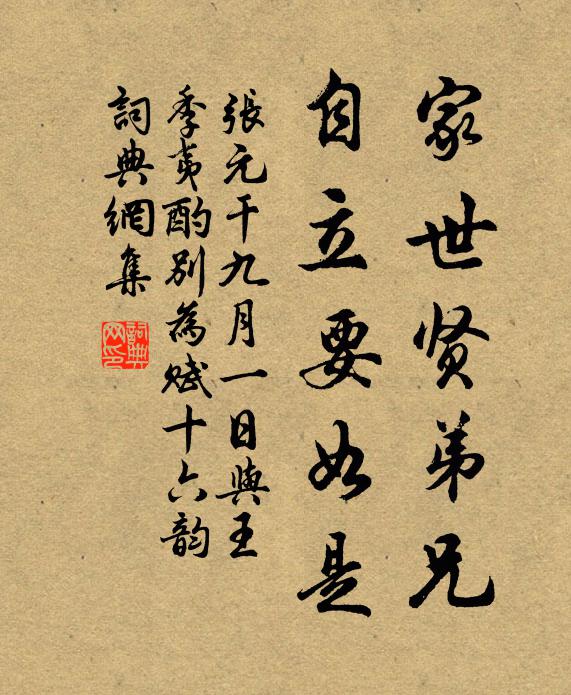 家世贤弟兄
自立要如是
張元干九月一日與王
季夷酌别為赋十六韵
詞典網集
詞典网印